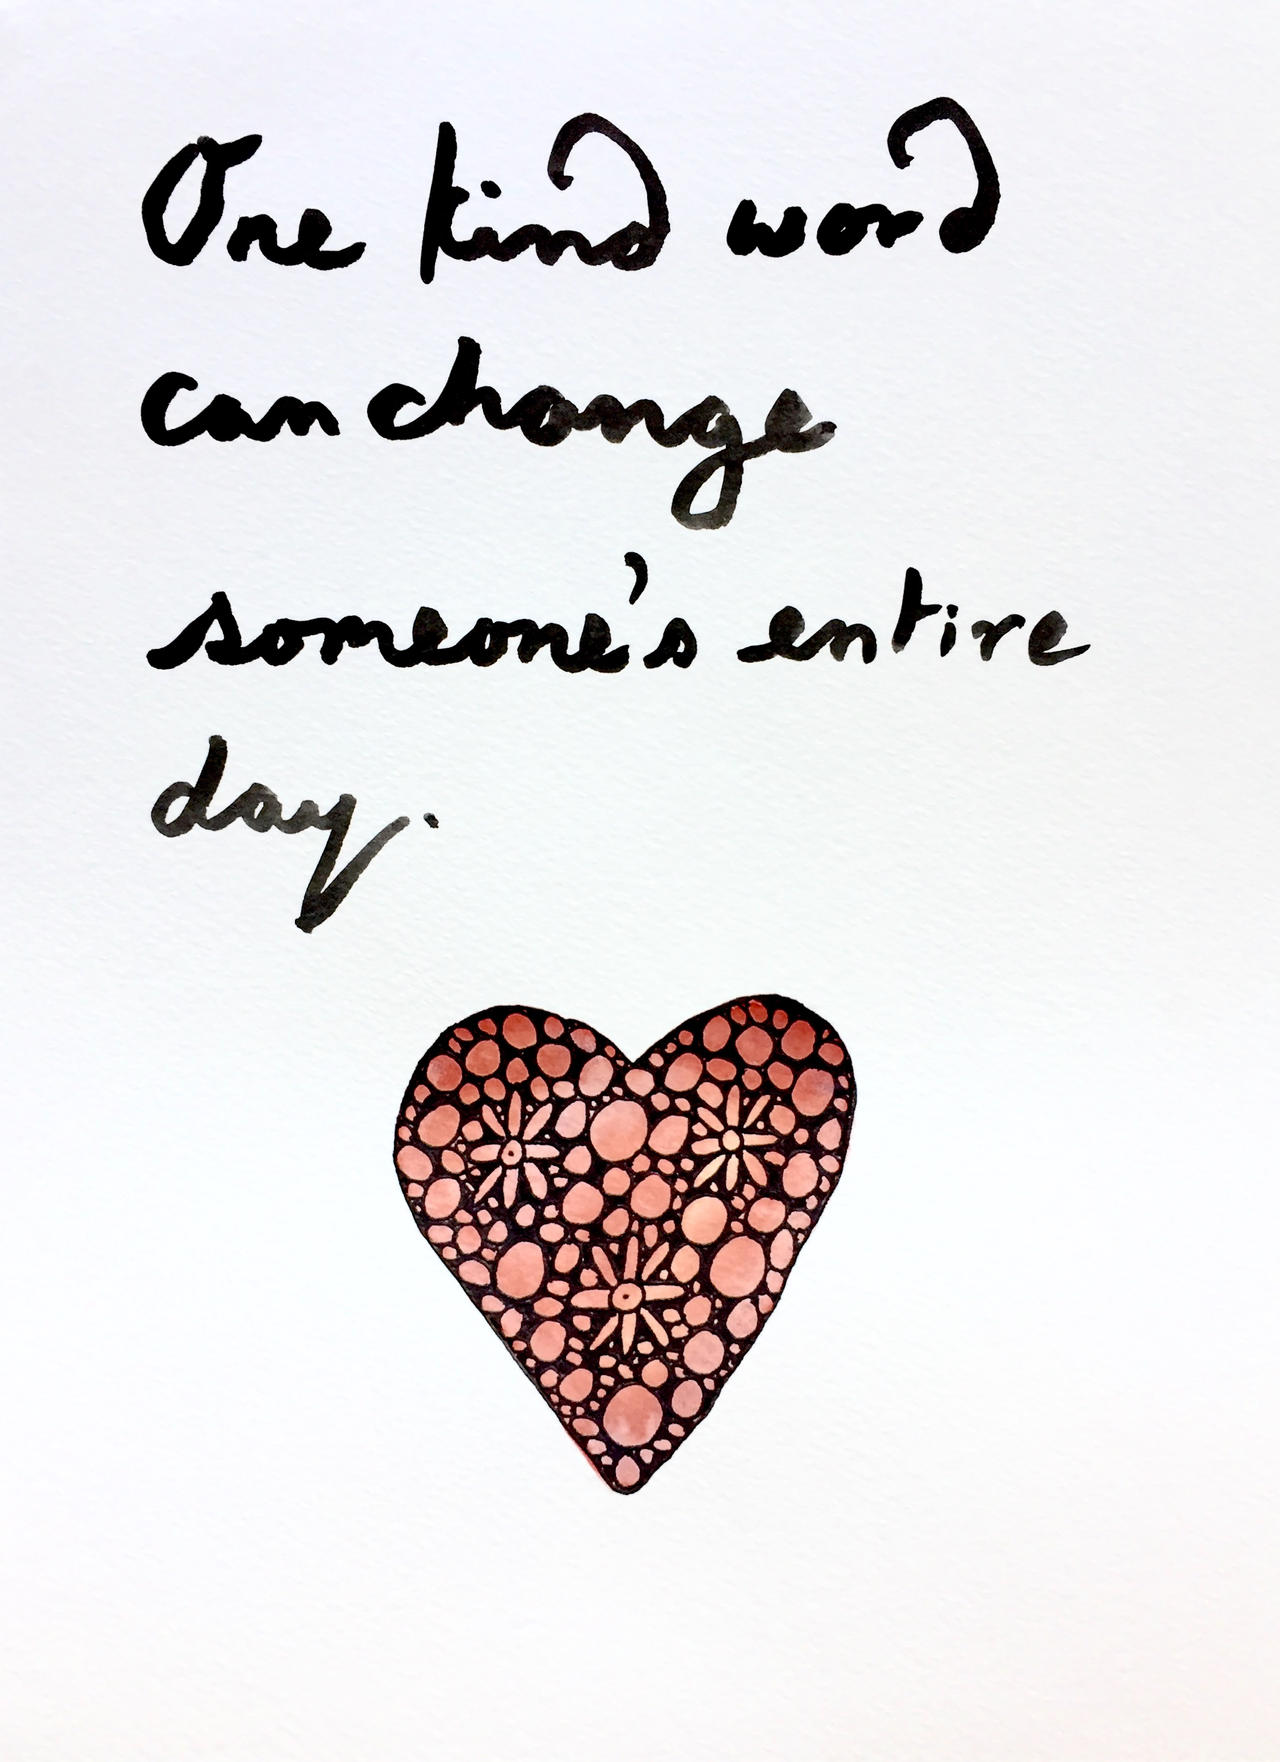 One kind word
can change
someone's entire
day.